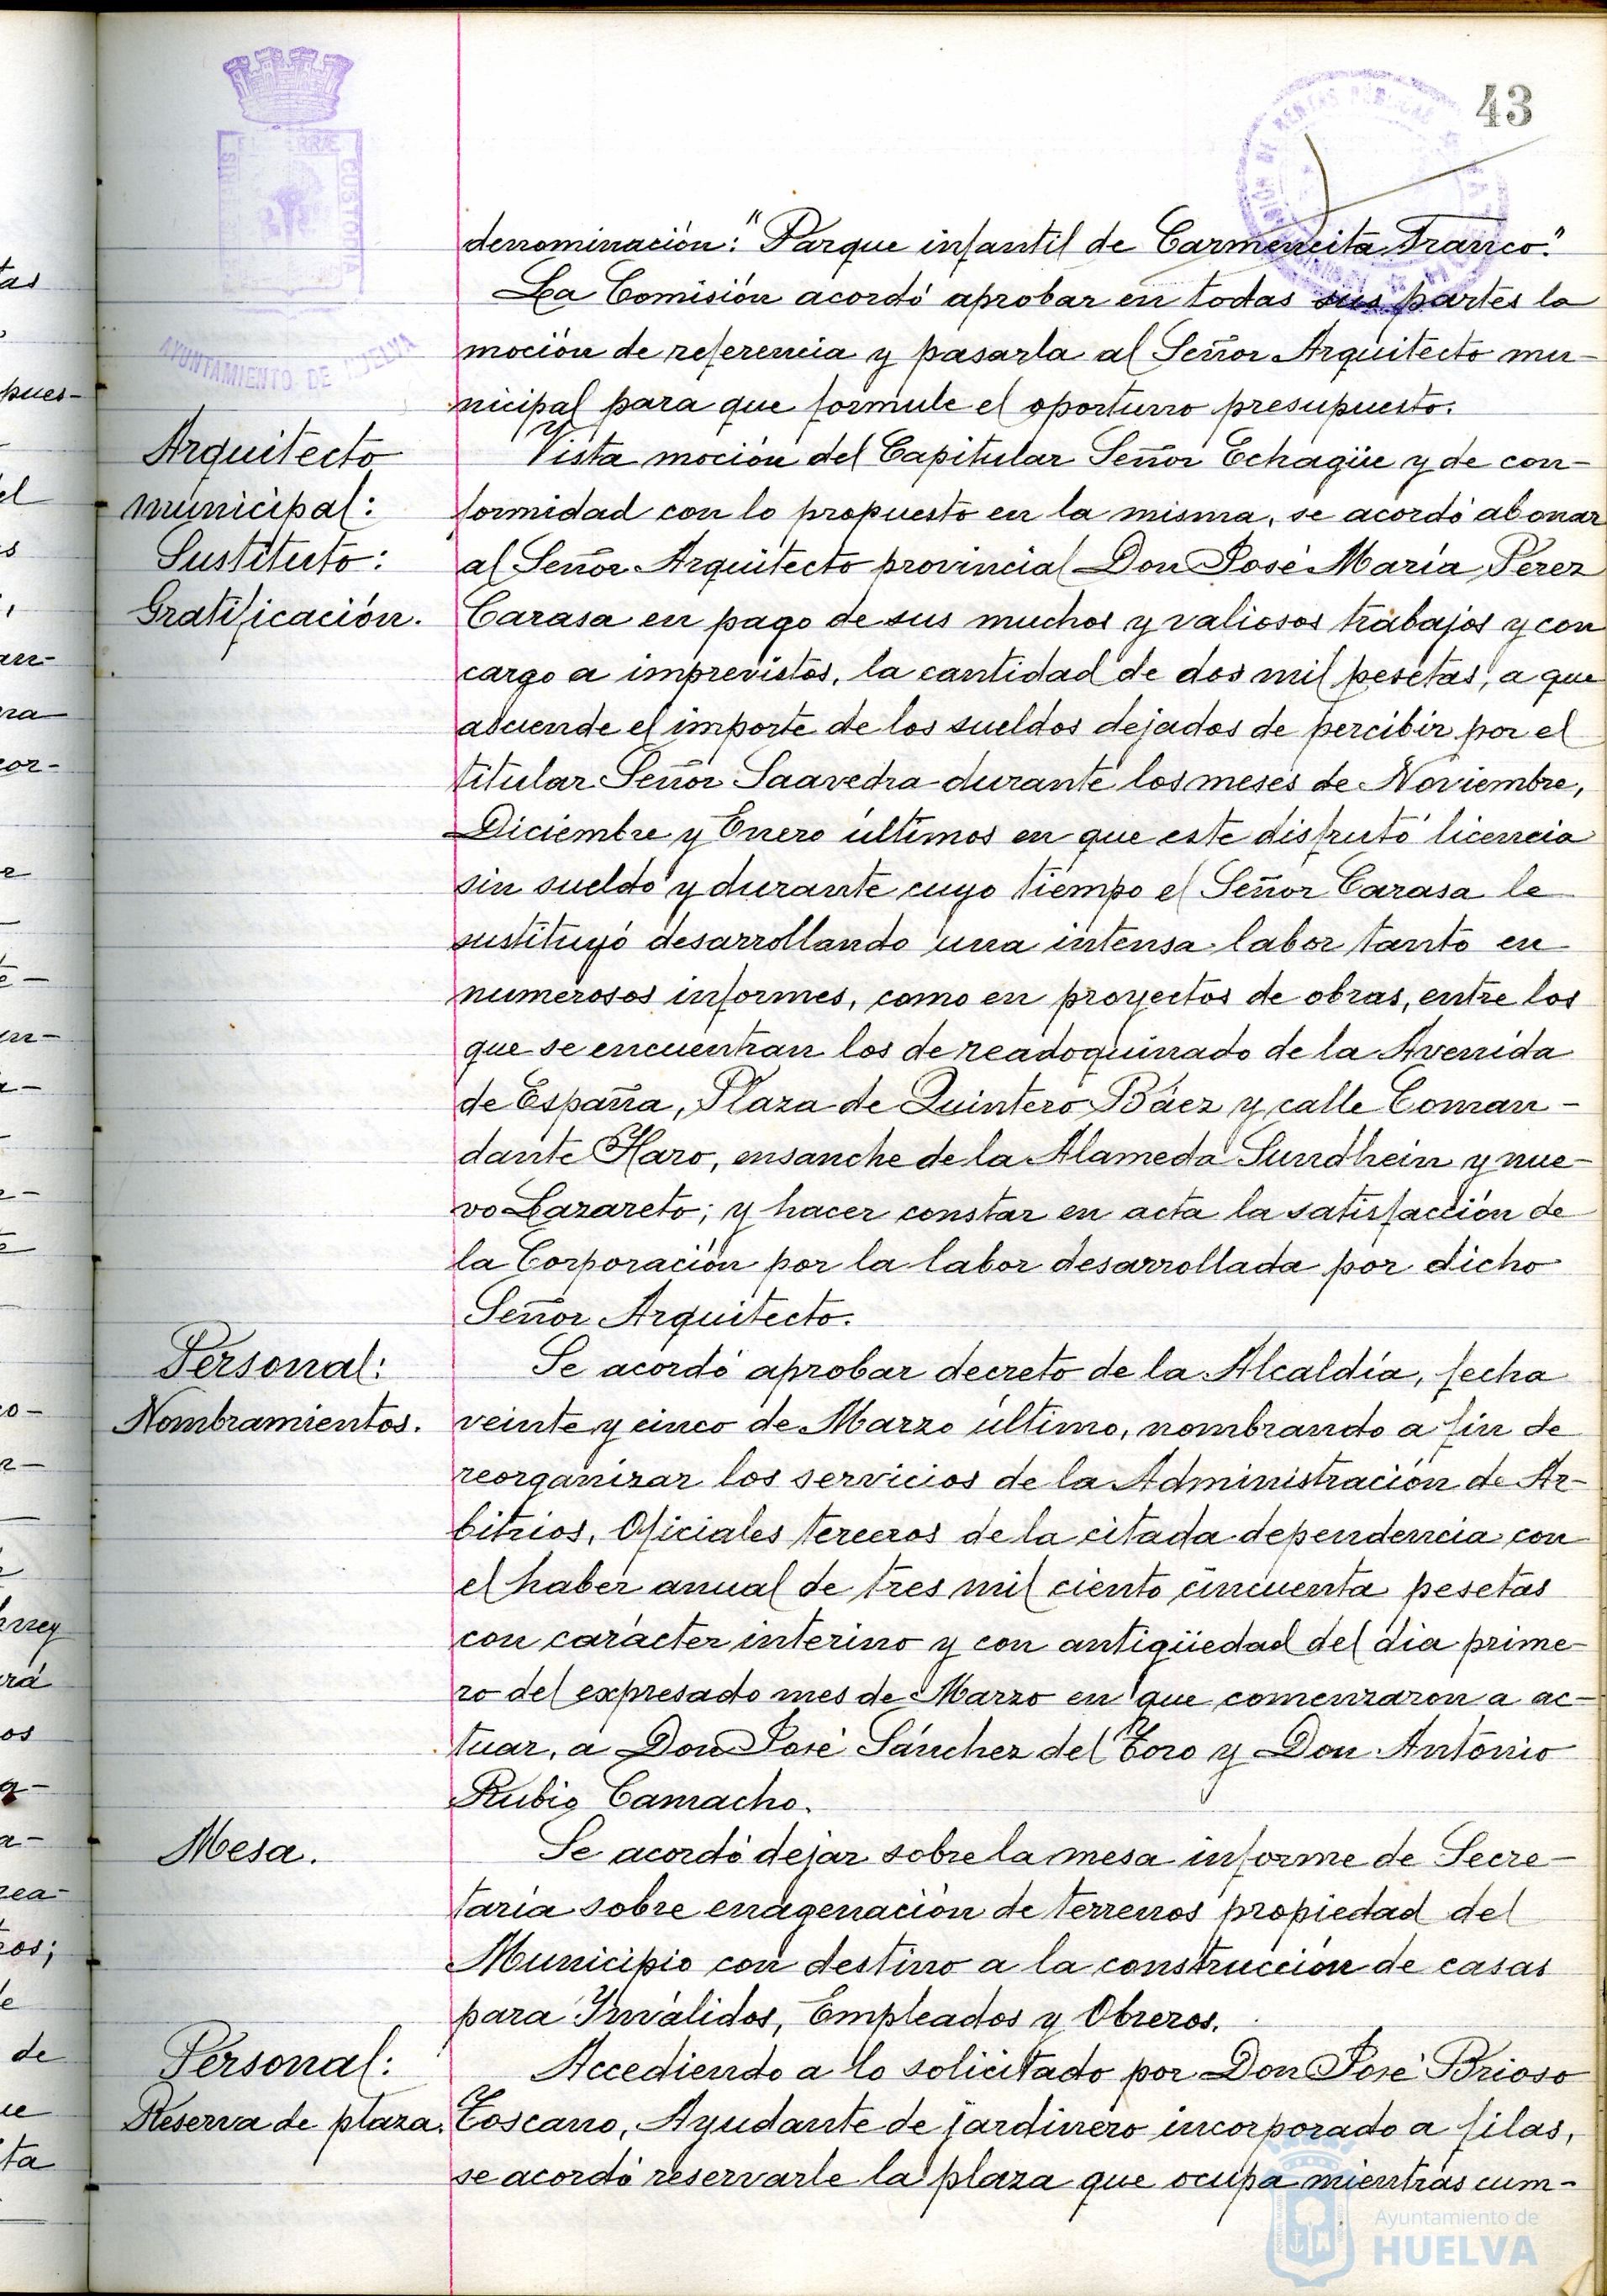 43
AYUNTAMIENTO DE HUELVA
denominación: "Parque infantil de Carmencita Franco".
La Comisión acordó aprobar en todas sus partes la
moción de referencia y pasarla al Señor Arquitecto mu-
nicipal para que formule el oportuno presupuesto.
Arquitecto
municipal:
Sustituto:
Gratificación.
Vista moción del Capitular Señor Echagüe y de con-
formidad con lo propuesto en la misma, se acordó abonar
al Señor Arquitecto provincial Don José María Pérez
Carasa en pago de sus muchos y valiosos trabajos y con
cargo a imprevistos, la cantidad de dos mil pesetas, a que
asciende el importe de los sueldos dejados de percibir por el
titular Señor Saavedra durante los meses de Noviembre,
Diciembre y Enero últimos en que este disfrutó licencia
sin sueldo y durante cuyo tiempo el Señor Carasa le
sustituyó desarrollando una intensa labor tanto en
numerosos informes, como en proyectos de obras, entre los
que se encuentran los de readoquinado de la Avenida
de España, Plaza de Quintero Báez y calle Coman-
dante Haro, ensanche de la Alameda Sundhein y nue-
vo Lazareto; y hacer constar en acta la satisfacción de
la Corporación por la labor desarrollada por dicho
Señor Arquitecto.
Personal:
Nombramientos.
Se acordó aprobar decreto de la Alcaldía, fecha
veinte y cinco de Marzo último, nombrando a fin de
reorganizar los servicios de la Administración de Ar-
bitrios, Oficiales terceros de la citada dependencia con
el haber anual de tres mil ciento cincuenta pesetas
con carácter interino y con antigüedad del dia prime-
ro del expresado mes de Marzo en que comenzaron a ac-
tuar, a Don José Sánchez del Toro y Don Antonio
Rubio Camacho.
Mesa.
Se acordó dejar sobre la mesa informe de Secre-
taría sobre enagenación de terrenos propiedad del
Municipio con destino a la construcción de casas
para Inválidos, Empleados y Obreros.
Personal:
Reserva de plaza.
Accediendo a lo solicitado por Don José Brioso
Toscano, Ayudante de jardinero incorporado a filas,
se acordó reservarle la plaza que ocupa mientras cum-
Ayuntamiento de
HUELVA